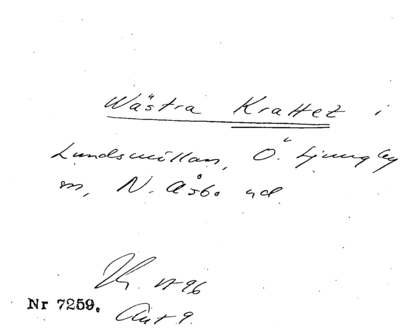 Wästra Krattet i
Lundsmillan, Ö. Ljungby
sn, N. Åsbo hd
Nr 7259.